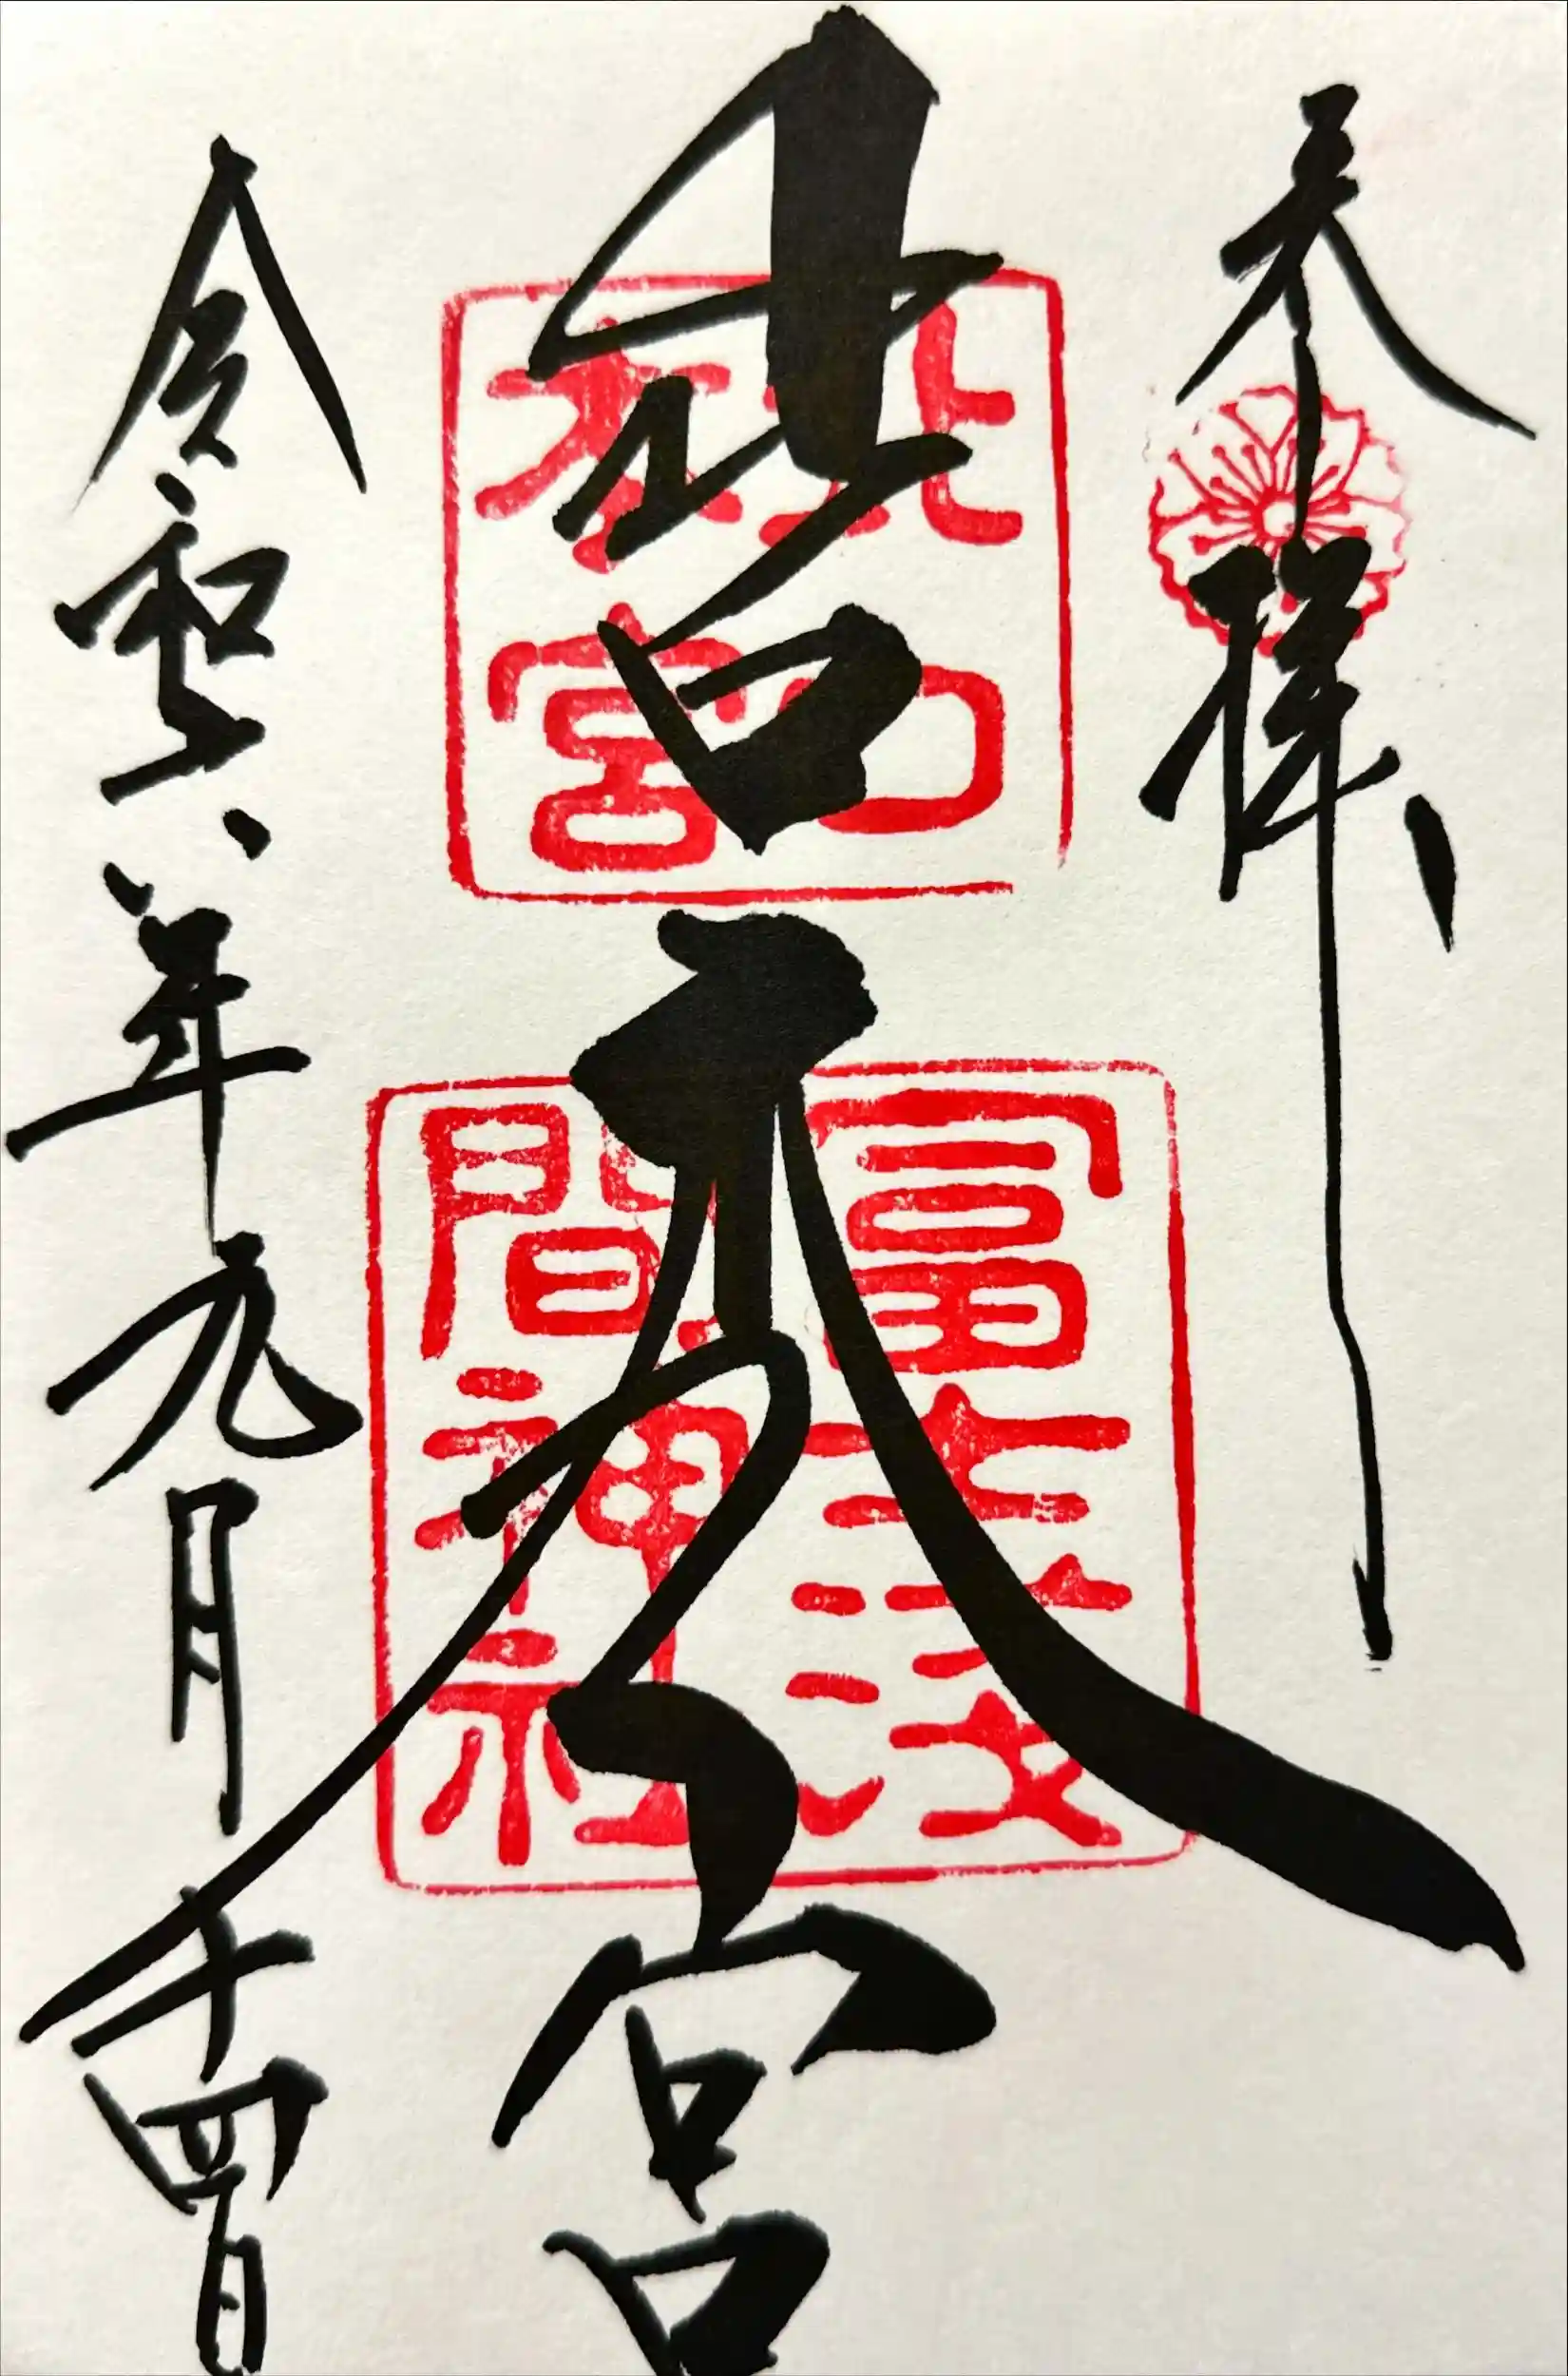 奉拝
北口本宮
北口
本宮
冨士浅
間神社
令和六年九月十四日